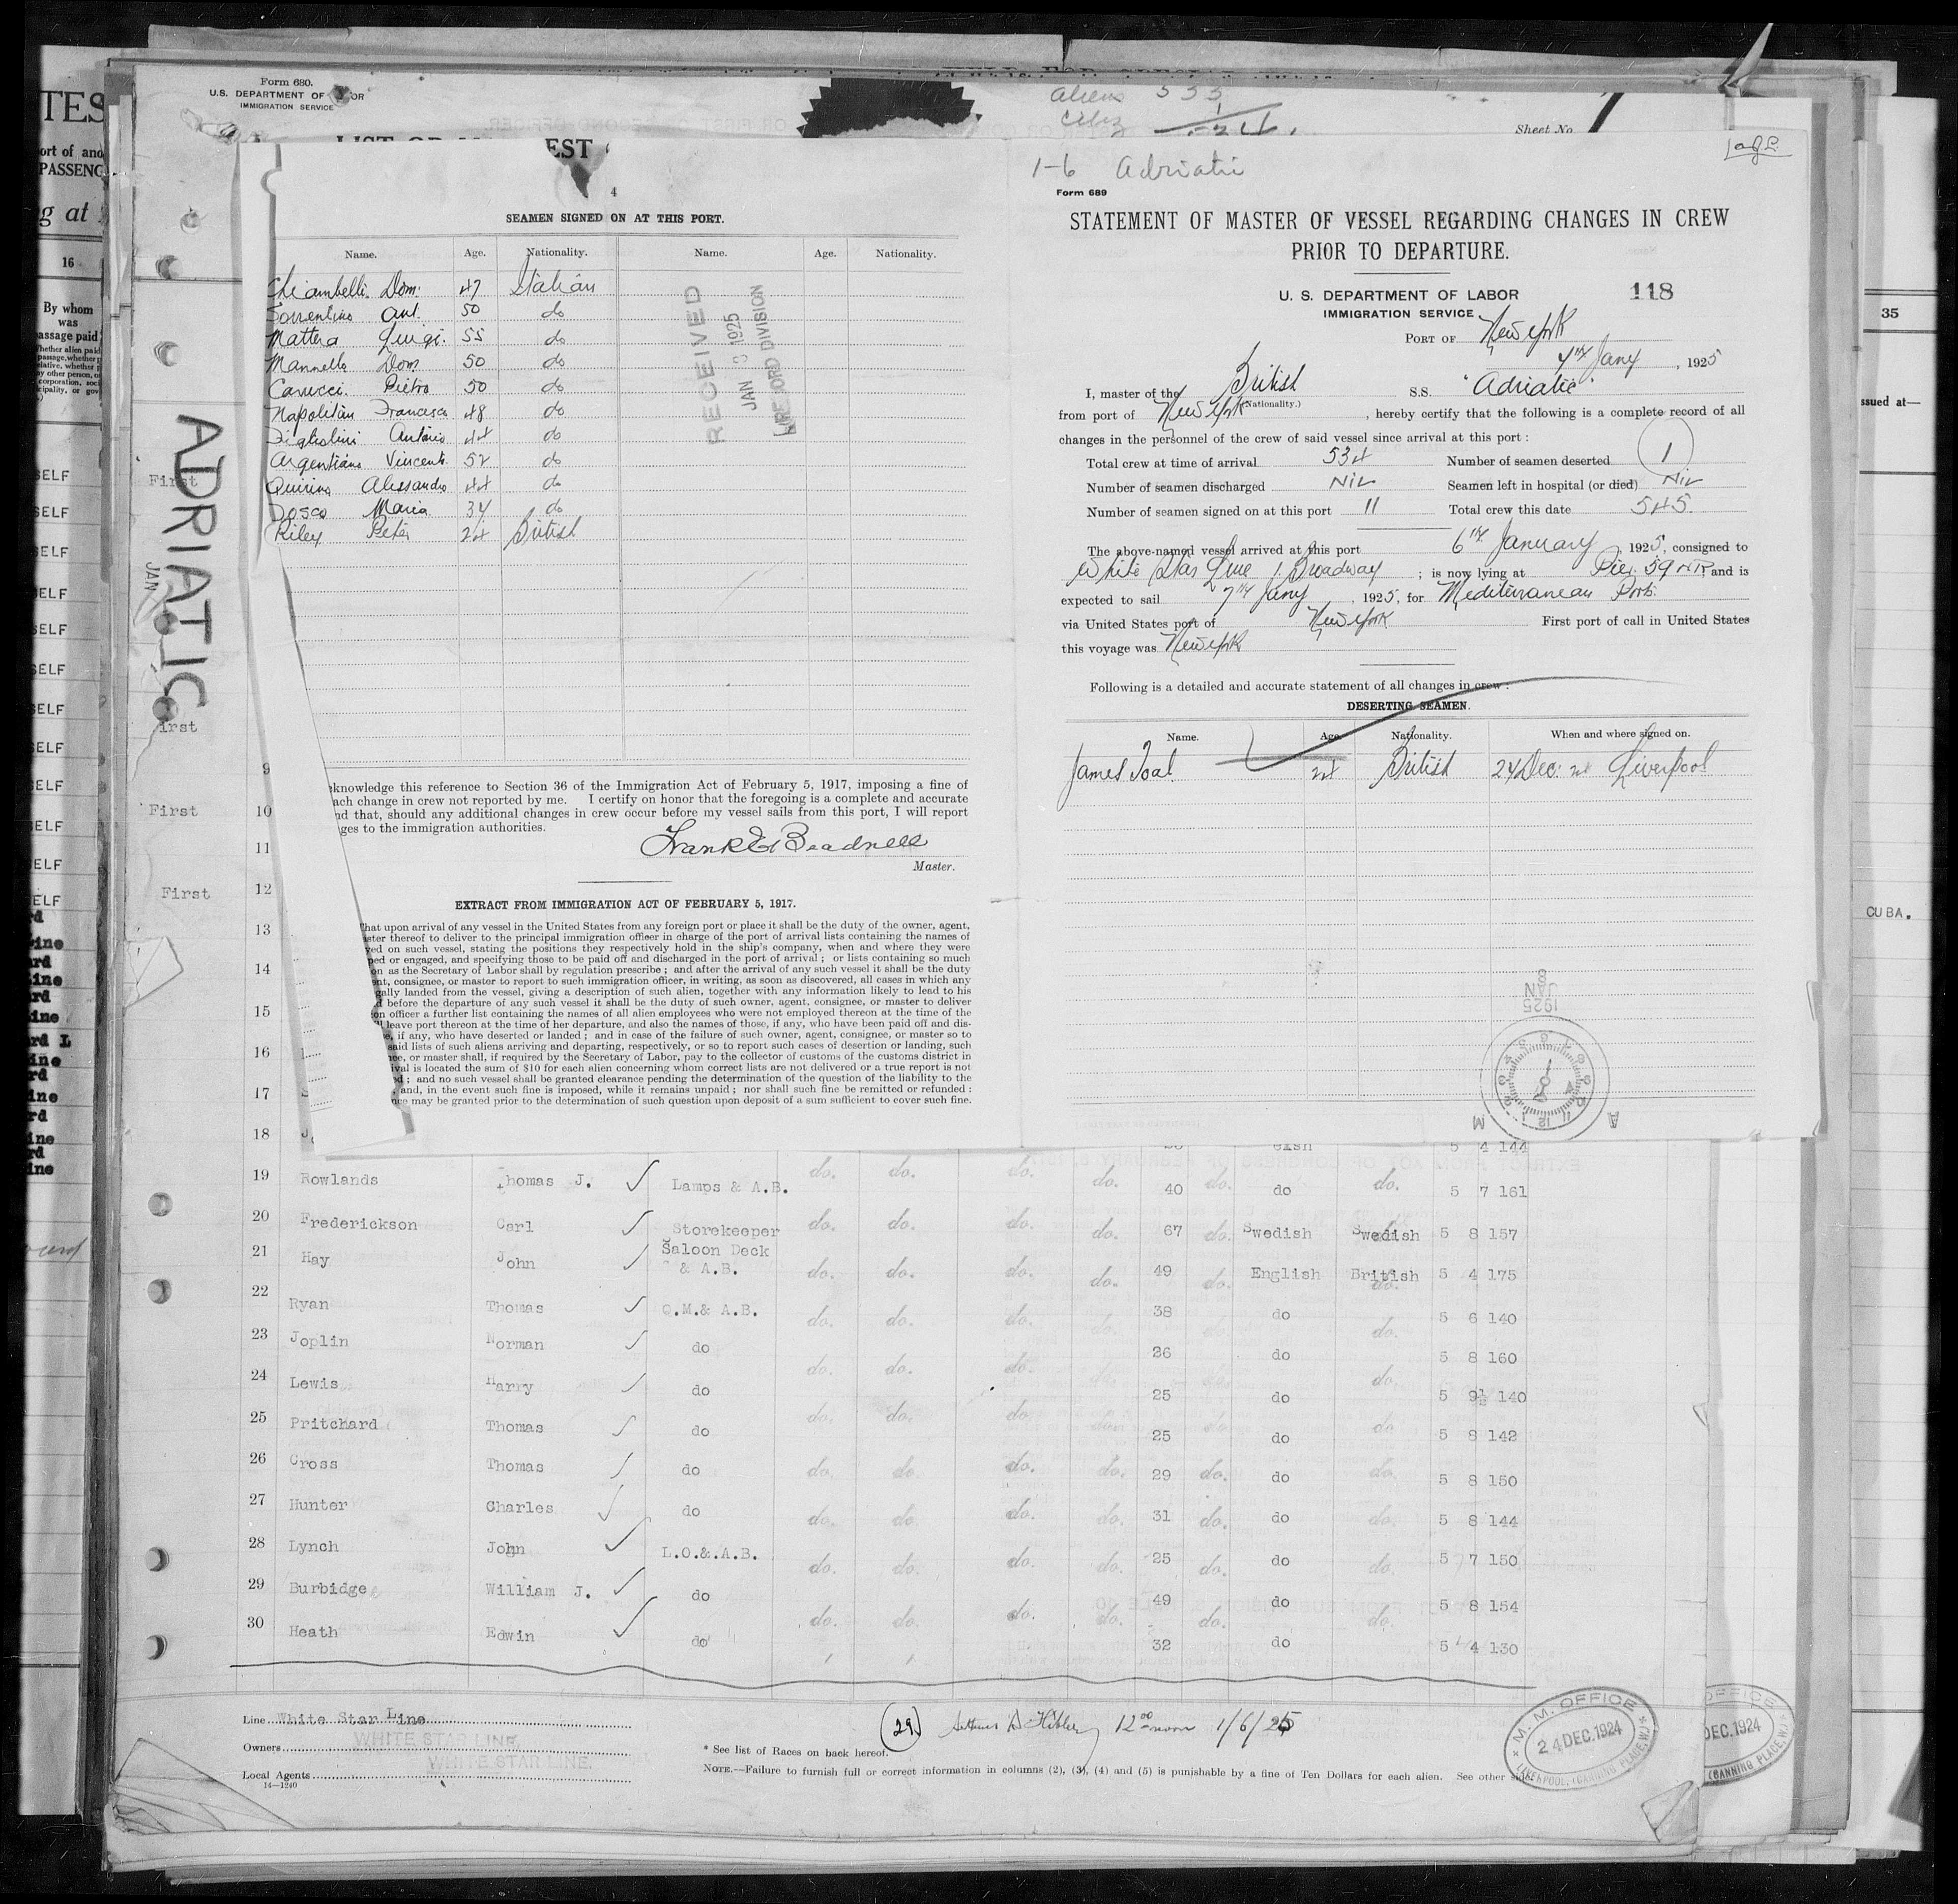 Form 680.
U.S. DEPARTMENT OF
IMMIGRATION SERVICE
Aliens 533
Sheet No. 1
1-6 Adriatic
Form 689
STATEMENT OF MASTER OF VESSEL REGARDING CHANGES IN CREW
PRIOR TO DEPARTURE.
U. S. DEPARTMENT OF LABOR 118
IMMIGRATION SERVICE
PORT OF New York
7th Jany, 1925
I, master of the British S.S. "Adriatic"
(Nationality.)
from port of New York, hereby certify that the following is a complete record of all
changes in the personnel of the crew of said vessel since arrival at this port :
Total crew at time of arrival 534 Number of seamen deserted 1
Number of seamen discharged Nil Seamen left in hospital (or died) Nil
Number of seamen signed on at this port 11 Total crew this date 545
The above-named vessel arrived at this port 6th January, 1925, consigned to
White Star Line 1 Broadway ; is now lying at Pier 59 N.R. and is
expected to sail 7th Jany, 1925, for Mediterranean Ports
via United States port of New York First port of call in United States
this voyage was New York
Following is a detailed and accurate statement of all changes in crew :
DESERTING SEAMEN.
Name. Age. Nationality. When and where signed on.
James Toal 24 British 24 Dec: 24 Liverpool
JAN 8 1925
A M
4
SEAMEN SIGNED ON AT THIS PORT.
Name. Age. Nationality. Name. Age. Nationality.
Chiambelli Dom: 47 Italian
Sorrentino Ant. 50 do
Mattera Luigi. 55 do
Mannello Dom 50 do
Carucci Pietro 50 do
Napolitan Francesco 48 do
Antonio 44 do
Argentiano Vincent. 52 do
Quirino Alessandro 44 do
Tosco Maria 34 do
Riley Peter 24 British
RECEIVED
JAN 9 1925
RECORD DIVISION
knowledge this reference to Section 36 of the Immigration Act of February 5, 1917, imposing a fine of
ach change in crew not reported by me. I certify on honor that the foregoing is a complete and accurate
nd that, should any additional changes in crew occur before my vessel sails from this port, I will report
ges to the immigration authorities.
Frank E Beadnell
Master.
EXTRACT FROM IMMIGRATION ACT OF FEBRUARY 5, 1917.
hat upon arrival of any vessel in the United States from any foreign port or place it shall be the duty of the owner, agent,
ster thereof to deliver to the principal immigration officer in charge of the port of arrival lists containing the names of
yed on such vessel, stating the positions they respectively hold in the ship's company, when and where they were
ped or engaged, and specifying those to be paid off and discharged in the port of arrival ; or lists containing so much
on as the Secretary of Labor shall by regulation prescribe ; and after the arrival of any such vessel it shall be the duty
ent, consignee, or master to report to such immigration officer, in writing, as soon as discovered, all cases in which any
gally landed from the vessel, giving a description of such alien, together with any information likely to lead to his
d before the departure of any such vessel it shall be the duty of such owner, agent, consignee, or master to deliver
on officer a further list containing the names of all alien employees who were not employed thereon at the time of the
ll leave port thereon at the time of her departure, and also the names of those, if any, who have been paid off and dis-
e, if any, who have deserted or landed ; and in case of the failure of such owner, agent, consignee, or master so to
said lists of such aliens arriving and departing, respectively, or so to report such cases of desertion or landing, such
nee, or master shall, if required by the Secretary of Labor, pay to the collector of customs of the customs district in
ival is located the sum of $10 for each alien concerning whom correct lists are not delivered or a true report is not
d ; and no such vessel shall be granted clearance pending the determination of the question of the liability to the
and, in the event such fine is imposed, while it remains unpaid ; nor shall such fine be remitted or refunded :
nce may be granted prior to the determination of such question upon deposit of a sum sufficient to cover such fine.
ADRIATIC
JAN
First
First
First
First
9
10
11
12
13
14
15
16
17
18 5 4 144
19 Rowlands Thomas J. Lamps & A.B. do. do. do. do. 40 do. do do. 5 7 161
20 Frederickson Carl Storekeeper do. do. do. do. 67 do. Swedish Swedish 5 8 157
21 Hay John Saloon Deck & A.B. do. do. do. do. 49 do. English British 5 4 175
22 Ryan Thomas Q.M.& A.B. do. do. do. 38 do do. 5 6 140
23 Joplin Norman do do. do. do. 26 do 5 8 160
24 Lewis Harry do do. do. do. 25 do do. 5 9½ 140
25 Pritchard Thomas do do. do. do. 25 do do 5 8 142
26 Cross Thomas do do. do. do. do. 29 do. do do. 5 8 150
27 Hunter Charles do do. do. do. do. 31 do. do do. 5 8 144
28 Lynch John L.O.&.A.B. do. do. do. do. 25 do. do do. 5 7 150
29 Burbidge William J. do do. do. do. do. 49 do. do do. 5 8 154
30 Heath Edwin do 32 do 5 4 130
Line White Star Line
Owners WHITE STAR LINE.
Local Agents WHITE STAR LINE.
14—1240
(29) 12 00 noon 1/6/25
* See list of Races on back hereof.
NOTE.—Failure to furnish full or correct information in columns (2), (3), (4) and (5) is punishable by a fine of Ten Dollars for each alien. See other side.
M. M. OFFICE
24 DEC. 1924
LIVERPOOL, (CANNING PLACE, W.)
OFFICE
DEC. 1924
(CANNING PLACE, W.)
16
By whom
was
passage paid
35
ssued at—
CUBA.